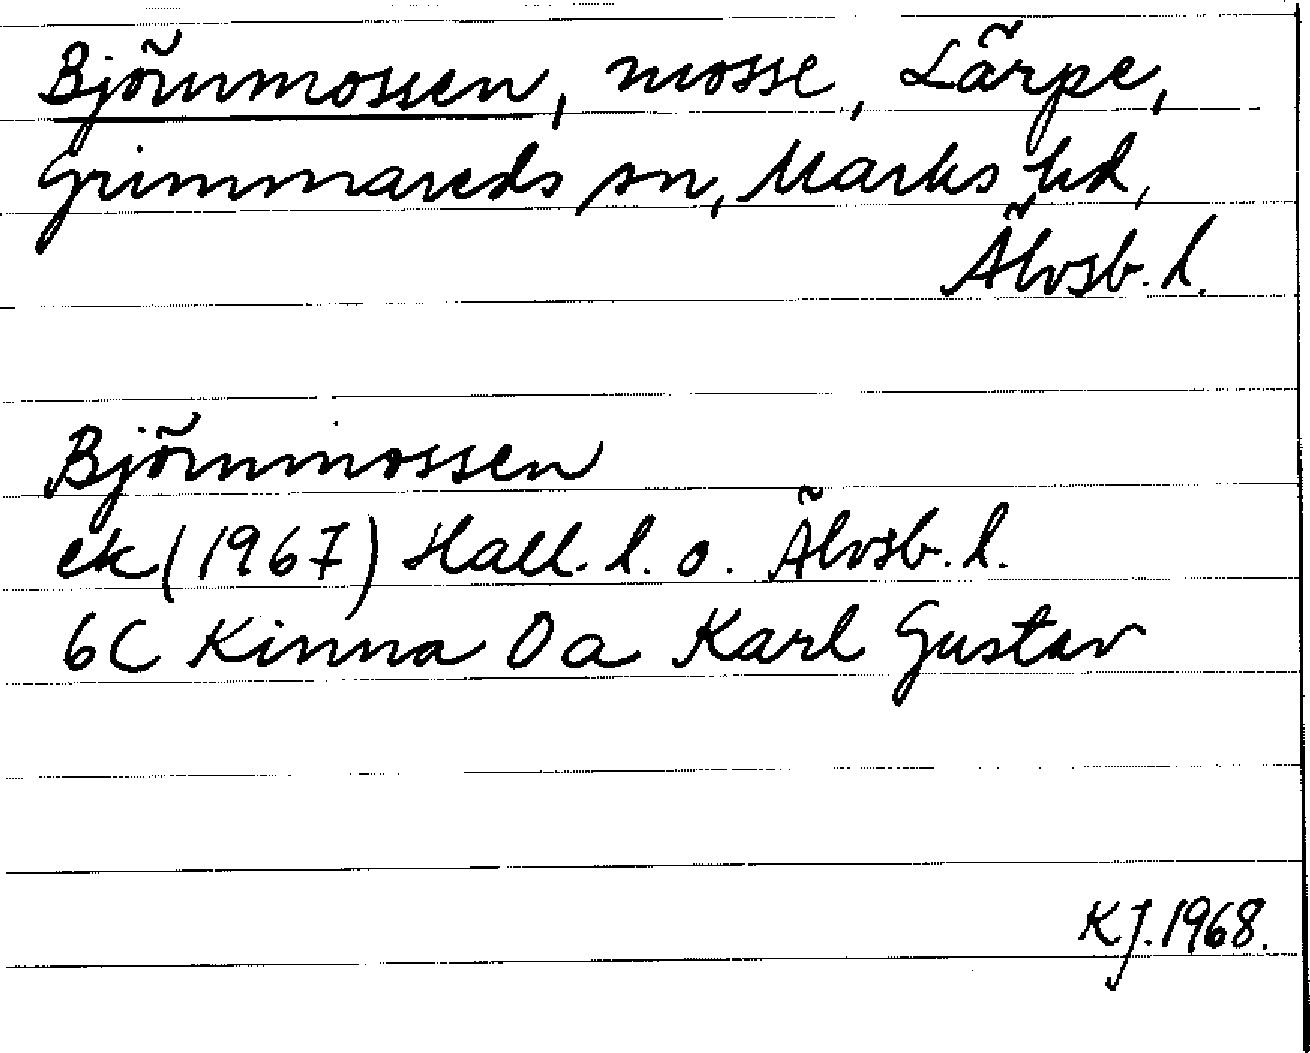 Björnmossen, mosse, Lärpe,
Grimmareds sn, Marks hd,
Älvsb. l.
Björnmossen
ek (1967) Hall. l. o. Älvsb. l.
6C Kinna 0a Karl Gustav
KJ. 1968.